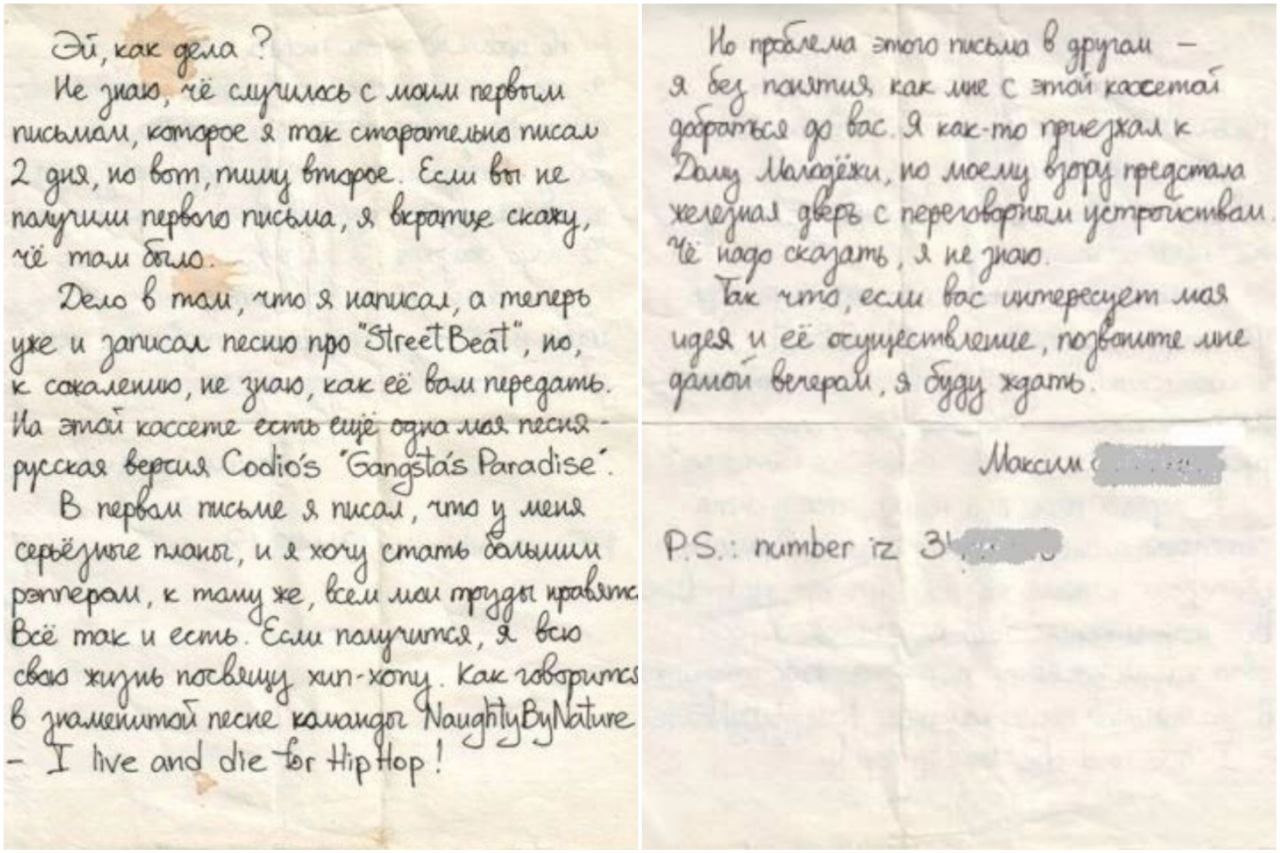 Эй, как дела?
Не знаю, чё случилось с моим первым
письмом, которое я так старательно писал
2 дня, но вот, пишу второе. Если вы не
получили первого письма, я вкратце скажу,
чё там было.
Дело в том, что я написал, а теперь
уже и записал песню про "StreetBeat", но,
к сожалению, не знаю, как её вам передать.
На этой кассете есть ещё одна моя песня -
русская версия Codio's "Gangsta's Paradise".
В первом письме я писал, что у меня
серьёзные планы, и я хочу стать большим
рэппером, к тому же, всем мои труды нравятс
Всё так и есть. Если получится, я всю
свою жизнь посвящу хип-хопу. Как говорится
в знаменитой песне команды NaughtyByNature
- I live and die for HipHop!
Но проблема этого письма в другом —
я без понятия как мне с этой кассетой
добраться до вас. Я как-то приезжал к
Дому Молодёжи, но моему взору предстала
железная дверь с переговорным устройством.
Чё надо сказать, я не знаю.
Так что, если вас интересует моя
идея и её осуществление, позвоните мне
домой вечером, я буду ждать.
Максим
P.S.: number iz 34